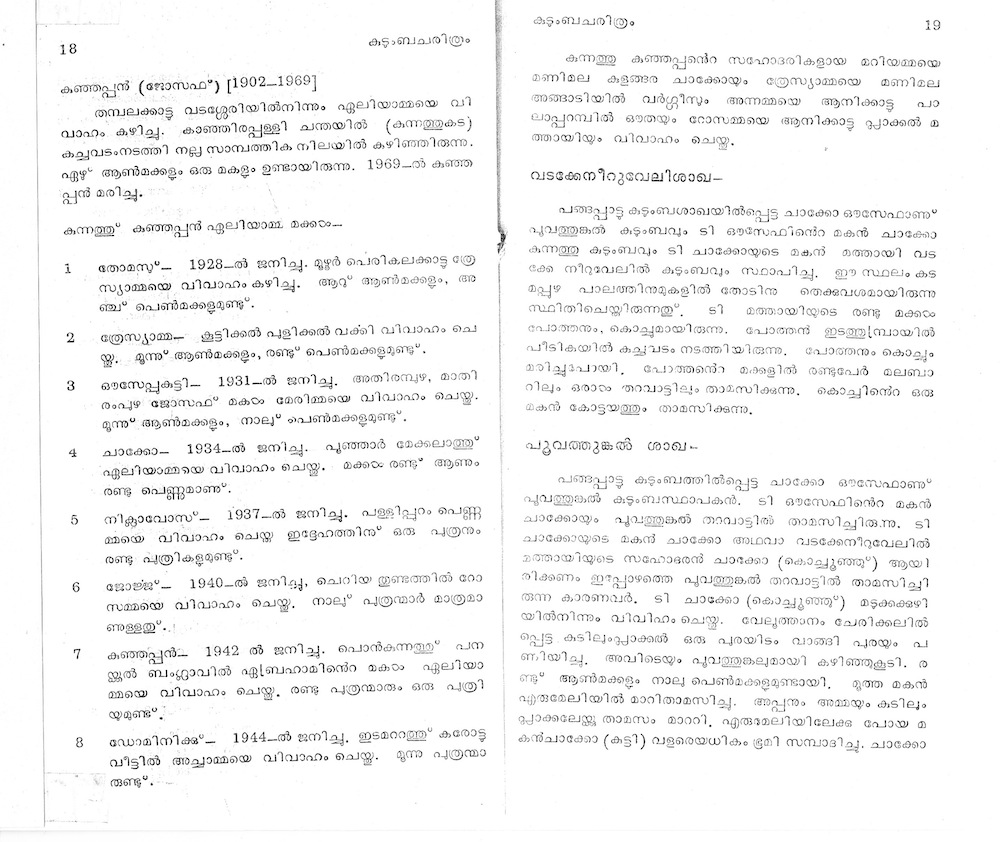 18
കുടുംബചരിത്രം
കുഞ്ഞപ്പൻ (ജോസഫ്) [1902–1969]
തമ്പലക്കാട്ടു വടശ്ശേരിയിൽനിന്നും ഏലിയാമ്മയെ വി
വാഹം കഴിച്ചു. കാഞ്ഞിരപ്പള്ളി ചന്തയിൽ (കുന്നത്തുകട)
കച്ചവടംനടത്തി നല്ല സാമ്പത്തിക നിലയിൽ കഴിഞ്ഞിരുന്നു.
ഏഴു് ആൺമക്കളും ഒരു മകളും ഉണ്ടായിരുന്നു. 1969–ൽ കുഞ്ഞ
പ്പൻ മരിച്ചു.
കുന്നത്തു് കുഞ്ഞപ്പൻ ഏലിയാമ്മ മക്കൾ—
1 തോമസ്സ്— 1928–ൽ ജനിച്ചു. മൂഴൂർ പെരികലക്കാട്ടു ത്രേ
സ്യാമ്മയെ വിവാഹം കഴിച്ചു. ആറു് ആൺമക്കളും, അ
ഞ്ചു് പെൺമക്കളുമുണ്ടു്.
2 ത്രേസ്യാമ്മ— കൂട്ടിക്കൽ പുളിക്കൽ വക്കി വിവാഹം ചെ
യ്തു. മൂന്നു് ആൺമക്കളും, രണ്ടു് പെൺമക്കളുമുണ്ടു്.
3 ഔസേപ്പുകുട്ടി— 1931–ൽ ജനിച്ചു. അതിരമ്പുഴ, മാതി
രംപുഴ ജോസഫ് മകൾ മേരിമ്മയെ വിവാഹം ചെയ്തു.
മൂന്നു് ആൺമക്കളും, നാലു് പെൺമക്കളുമുണ്ടു്.
4 ചാക്കോ— 1934–ൽ ജനിച്ചു. പൂഞ്ഞാർ മേക്കലാത്തു്
ഏലിയാമ്മയെ വിവാഹം ചെയ്തു. മക്കൾ രണ്ടു് ആണും
രണ്ടു പെണ്ണുമാണു്.
5 നിക്ലാവോസു്— 1937–ൽ ജനിച്ചു. പള്ളിപ്പുറം പെണ്ണ
മ്മയെ വിവാഹം ചെയ്തു ഇദ്ദേഹത്തിനു് ഒരു പുത്രനും
രണ്ടു പുത്രികളുമുണ്ടു്.
6 ജോജ്ജു്— 1940–ൽ ജനിച്ചു, ചെറിയ തുണ്ടത്തിൽ റോ
സമ്മയെ വിവാഹം ചെയ്തു. നാലു് പുത്രന്മാർ മാത്രമാ
ണുള്ളതു്.
7 കുഞ്ഞപ്പൻ— 1942 ൽ ജനിച്ചു. പൊൻകുന്നത്തു് പന
യ്ക്കൽ ബംഗ്ലാവിൽ ഏബ്രഹാമിൻെറ മകൾ ഏലിയാ
മ്മയെ വിവാഹം ചെയ്തു. രണ്ടു പുത്രന്മാരും ഒരു പുത്രി
യുമുണ്ടു്.
8 ഡോമിനിക്കു്— 1944–ൽ ജനിച്ചു. ഇടമററത്തു് കരോട്ടു
വീട്ടിൽ അച്ചാമ്മയെ വിവാഹം ചെയ്തു. മൂന്നു പുത്രന്മാ
രുണ്ടു്.
കുടുംബചരിത്രം
19
കുന്നത്തു കുഞ്ഞപ്പൻെറ സഹോദരികളായ മറിയമ്മയെ
മണിമല കുളങ്ങര ചാക്കോയും ത്രേസ്യാമ്മയെ മണിമല
അങ്ങാടിയിൽ വർഗ്ഗീസും അന്നമ്മയെ ആനിക്കാട്ടു പാ
ലാപ്പറമ്പിൽ ഔതയും റോസമ്മയെ ആനിക്കാട്ടു പ്ലാക്കൽ മ
ത്തായിയും വിവാഹം ചെയ്തു.
വടക്കേനീറുവേലിശാഖ—
പങ്ങപ്പാട്ടു കുടുംബശാഖയിൽപ്പെട്ട ചാക്കോ ഔസേഫാണു്
പൂവത്തുങ്കൽ കുടുംബവും ടി ഔസേഫിൻെറ മകൻ ചാക്കോ
കുന്നത്തു കുടുംബവും ടി ചാക്കോയുടെ മകൻ മത്തായി വട
ക്കേ നീറുവേലിൽ കുടുംബവും സ്ഥാപിച്ചു. ഈ സ്ഥലം കട
മപ്പുഴ പാലത്തിനുമുകളിൽ തോടിനു തെക്കുവശമായിരുന്നു
സ്ഥിതിചെയ്തിരുന്നതു്. ടി മത്തായിയുടെ രണ്ടു മക്കൾ
പോത്തനും, കൊച്ചുമായിരുന്നു. പോത്തൻ ഇടത്തുമ്പ്രായിൽ
പീടികയിൽ കച്ചവടം നടത്തിയിരുന്നു. പോത്തനും കൊച്ചും
മരിച്ചുപോയി. പോത്തൻെറ മക്കളിൽ രണ്ടുപേർ മലബാ
റിലും ഒരാൾ തറവാട്ടിലും താമസിക്കുന്നു. കൊച്ചിൻെറ ഒരു
മകൻ കോട്ടയത്തും താമസിക്കുന്നു.
പൂവത്തുങ്കൽ ശാഖ—
പങ്ങപ്പാട്ടു കുടുംബത്തിൽപ്പെട്ട ചാക്കോ ഔസേഫാണു്
പൂവത്തുങ്കൽ കുടുംബസ്ഥാപകൻ. ടി ഔസേഫിൻെറ മകൻ
ചാക്കോയും പൂവത്തുങ്കൽ തറവാട്ടിൽ താമസിച്ചിരുന്നു. ടി
ചാക്കോയുടെ മകൻ ചാക്കോ അഥവാ വടക്കേനീറുവേലിൽ
മത്തായിയുടെ സഹോദരൻ ചാക്കോ (കൊച്ചൂഞ്ഞു്) ആയി
രിക്കണം ഇപ്പോഴത്തെ പൂവത്തുങ്കൽ തറവാട്ടിൽ താമസിച്ചി
രുന്ന കാരണവർ. ടി ചാക്കോ (കൊച്ചൂഞ്ഞു്) മടുക്കക്കുഴി
യിൽനിന്നും വിവിഹം ചെയ്തു. വേലൂത്താനം ചേരിക്കലിൽ
പ്പെട്ട കുടിലുംപ്ലാക്കൽ ഒരു പുരയിടം വാങ്ങി പുരയും പ
ണിയിച്ചു. അവിടെയും പൂവത്തുങ്കലുമായി കഴിഞ്ഞുകൂടി. ര
ണ്ടു് ആൺമക്കളും നാലു പെൺമക്കളുമുണ്ടായി. മൂത്ത മകൻ
എരുമേലിയിൽ മാറിതാമസിച്ചു. അപ്പനും അമ്മയും കുടിലും
പ്ലാക്കലേയ്ക്കു താമസം മാററി. എരുമേലിയിലേക്കു പോയ മ
കൻചാക്കോ (കുട്ടി) വളരെയധികം ഭൂമി സമ്പാദിച്ചു. ചാക്കോ